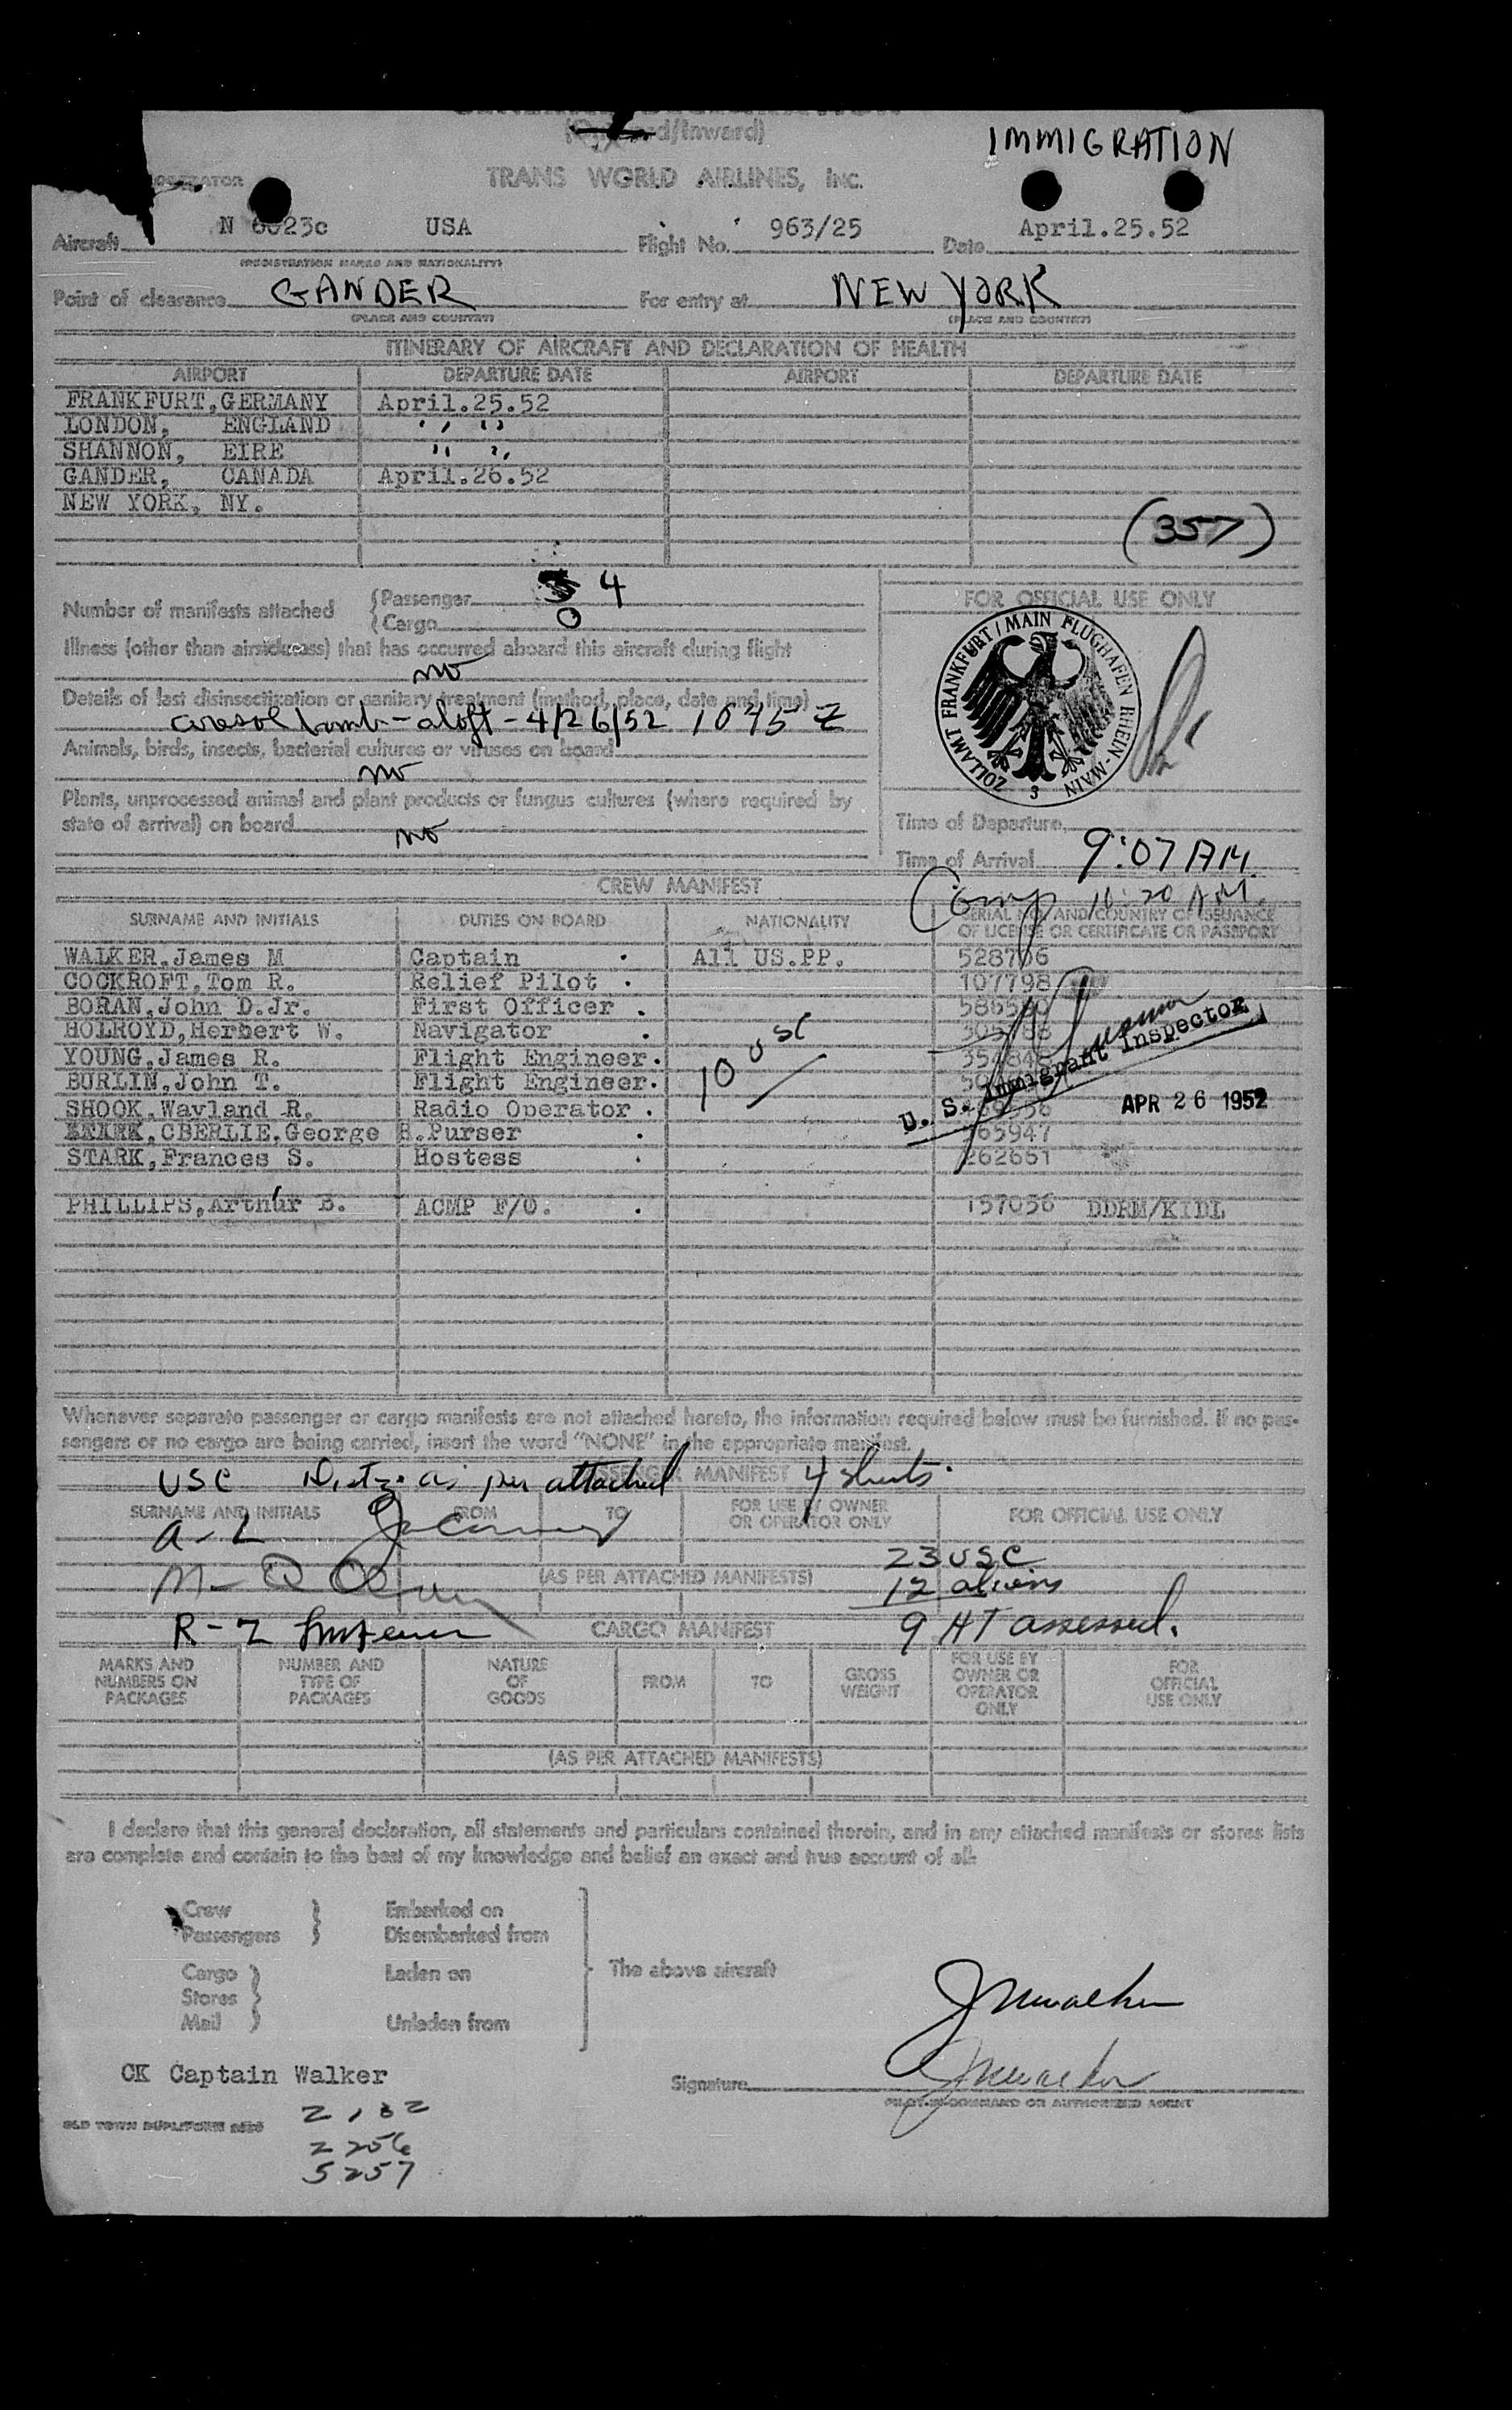 IMMIGRATION
(Outward/Inward)
OPERATOR
TRANS WORLD AIRLINES, INC.
Aircraft N 6023c USA Flight No. 963/25 Date April.25.52
(REGISTRATION MARKS AND NATIONALITY)
Point of clearance GANDER For entry at NEW YORK
(PLACE AND COUNTRY) (PLACE AND COUNTRY)
ITINERARY OF AIRCRAFT AND DECLARATION OF HEALTH
AIRPORT DEPARTURE DATE AIRPORT DEPARTURE DATE
FRANKFURT,GERMANY April.25.52
LONDON, ENGLAND " "
SHANNON, EIRE " "
GANDER, CANADA April.26.52
NEW YORK, NY.
(357)
Number of manifests attached {Passenger 4
{Cargo 0
FOR OFFICIAL USE ONLY
Illness (other than airsickness) that has occurred aboard this aircraft during flight
no
Details of last disinsectization or sanitary treatment (method, place, date and time)
aerosol bomb - aloft - 4/26/52 1045 Z
Animals, birds, insects, bacterial cultures or viruses on board
no
Plants, unprocessed animal and plant products or fungus cultures (where required by
state of arrival) on board
no
ZOLLAMT FRANKFURT/MAIN FLUGHAFEN RHEIN-MAIN 3
Time of Departure
Time of Arrival 9:07 AM.
Comp 10:20 AM.
CREW MANIFEST
SURNAME AND INITIALS DUTIES ON BOARD NATIONALITY SERIAL NO. AND COUNTRY OF ISSUANCE
OF LICENSE OR CERTIFICATE OR PASSPORT
WALKER,James M Captain . All US.PP. 528756
COCKROFT,Tom R. Relief Pilot . 107798
BORAN,John D.Jr. First Officer .
HOLROYD,Herbert W. Navigator .
YOUNG,James R. Flight Engineer.
BURLIN,John T. Flight Engineer.
SHOOK,Wayland R. Radio Operator .
OBERLIE,George H.Purser . 365947
STARK,Frances S. Hostess . 262651
PHILLIPS,Arthur B. ACMP F/O. . 157056 DDRM/KIDL
10 USC
U. S. Immigrant Inspector
APR 26 1952
Whenever separate passenger or cargo manifests are not attached hereto, the information required below must be furnished. If no pas-
sengers or no cargo are being carried, insert the word "NONE" in the appropriate manifest.
PASSENGER MANIFEST
USC as per attached 4 sheets.
SURNAME AND INITIALS FROM TO FOR USE BY OWNER
OR OPERATOR ONLY FOR OFFICIAL USE ONLY
A-L
23 USC
M-Q
(AS PER ATTACHED MANIFESTS)
12 aliens
R-Z
CARGO MANIFEST
9 HT assessed.
MARKS AND
NUMBERS ON
PACKAGES
NUMBER AND
TYPE OF
PACKAGES
NATURE
OF
GOODS
FROM
TO
GROSS
WEIGHT
FOR USE BY
OWNER OR
OPERATOR
ONLY
FOR
OFFICIAL
USE ONLY
(AS PER ATTACHED MANIFESTS)
I declare that this general declaration, all statements and particulars contained therein, and in any attached manifests or stores lists
are complete and contain to the best of my knowledge and belief an exact and true account of all:
Crew
Passengers
Embarked on
Disembarked from
Cargo
Stores
Mail
Laden on
Unladen from
The above aircraft
JMWalker
CK Captain Walker
Signature JMWalker
PILOT-IN-COMMAND OR AUTHORIZED AGENT
2132
2256
5257